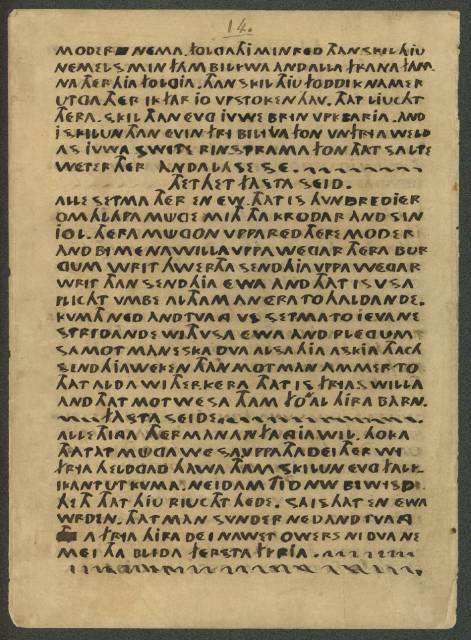 14.
MODER NEMA. FOLGATH HI MIN RED THAN SKIL HJU
NEMELS MIN FAM BILYWA AND ALLA FRANA FAM-
NA THER HJA FOLGJA. THAN SKIL HJU FODDIK NAMER
UTGA THER IK FAR JO UPSTOKEN HAV. THAT LJUCHT
THERA. SKIL THAN EVG JUWE BRIN UPKLARJA. AND
I SKILUN THAN EVIN FRY BILIWA FON UNFRYA WELD
AS JUWA SWITE RINSTRAMA FON THAT SALTE
WETER THER ANDALASE SE.
THET HET FASTA SEID.
ALLE SETMA THER EN EW. THAT IS HUNDRED IER
OMHLAPA MUGE MITH THA KRODAR AND SIN
JOL. THERA MUGON UPPA RED THERE MODER
AND BI MENA WILLA UPPA WEGAR THERA BUR
GUM WRIT HWERTHA SEND HJA UPPA WEGAR
WRIT THAN SEND HJA EWA AND THAT IS USA
PLICHT UMBE ALTHAM AN ERA TO HALDANDE.
KUMTH NED AND TVANG US SETMA TO JEVANE
STRIDANDE WITH USA EWA AND PLEGUM
SA MOT MANESKA DVA ALSA HJA ASKJA THACH
SEND HJA WEKEN THAN MOT MAN AMMER TO
THAT ALDA WITHERKERA THAT IS FRYAS WILLA
AND THAT MOT WESA THAM FON AL HIRA BARN.
FASTA SEIDE.
ALLE THINGA THER MAN ANFANGJA WIL. HOKA
THAT THAT MUGA WESA UPPA THA DEI THER WI
FRYA HELDGAD HAWA THAM SKILUN EVG FALI-
IKANT UTKUMA. NEIDAM TID NW BIWYSD
HETH THAT HJU RIUCHT HEDE. SA IS THAT EN EWA
WRDEN. THAT MAN SUNDER NED AND TVANG
A FRYA HIRA DEI NAWET OWERS NI DVA NE
MEI THA BLIDA FERSTA FYRJA.